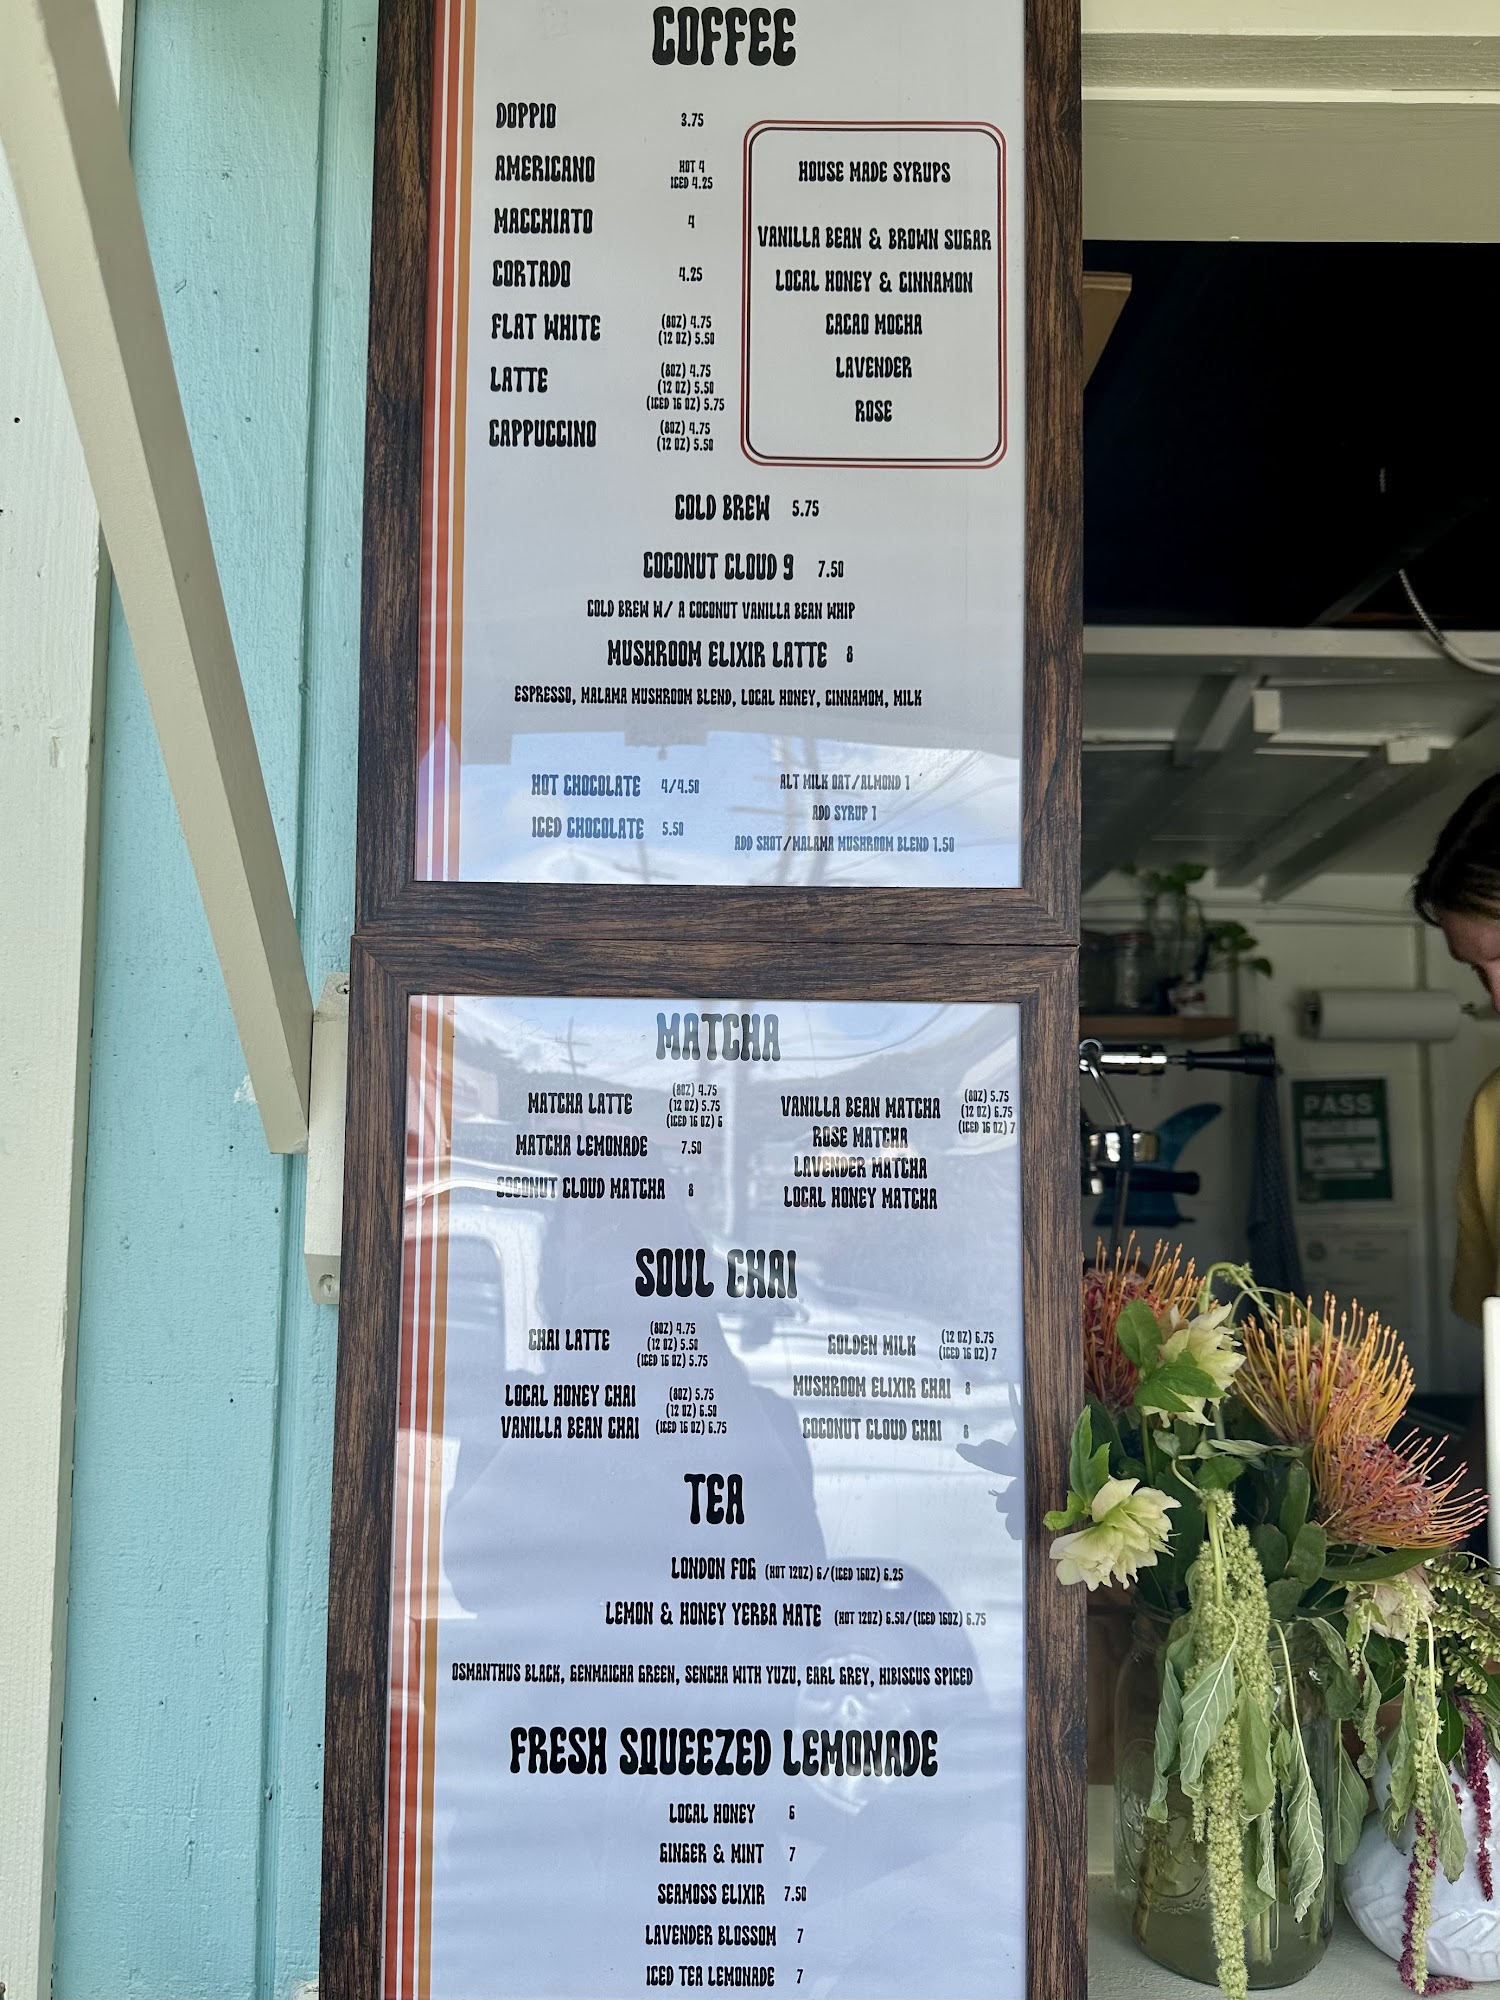 COFFEE
DOPPIO 3.75
AMERICANO HOT 4
ICED 4.25
MACCHIATO 4
CORTADO 4.25
FLAT WHITE (8OZ) 4.75
(12 OZ) 5.50
LATTE (8OZ) 4.75
(12 OZ) 5.50
(ICED 16 OZ) 5.75
CAPPUCCINO (8OZ) 4.75
(12 OZ) 5.50
HOUSE MADE SYRUPS
VANILLA BEAN & BROWN SUGAR
LOCAL HONEY & CINNAMON
CACAO MOCHA
LAVENDER
ROSE
COLD BREW 5.75
COCONUT CLOUD 9 7.50
COLD BREW W/ A COCONUT VANILLA BEAN WHIP
MUSHROOM ELIXIR LATTE 8
ESPRESSO, MALAMA MUSHROOM BLEND, LOCAL HONEY, CINNAMOM, MILK
HOT CHOCOLATE 4/4.50
ICED CHOCOLATE 5.50
ALT MILK OAT/ALMOND 1
ADD SYRUP 1
ADD SHOT/MALAMA MUSHROOM BLEND 1.50
MATCHA
MATCHA LATTE (8OZ) 4.75
(12 OZ) 5.75
(ICED 16 OZ) 6
MATCHA LEMONADE 7.50
COCONUT CLOUD MATCHA 8
VANILLA BEAN MATCHA (8OZ) 5.75
(12 OZ) 6.75
(ICED 16 OZ) 7
ROSE MATCHA
LAVENDER MATCHA
LOCAL HONEY MATCHA
SOUL CHAI
CHAI LATTE (8OZ) 4.75
(12 OZ) 5.50
(ICED 16 OZ) 5.75
LOCAL HONEY CHAI (8OZ) 5.75
(12 OZ) 6.50
VANILLA BEAN CHAI (ICED 16 OZ) 6.75
GOLDEN MILK (12 OZ) 6.75
(ICED 16 OZ) 7
MUSHROOM ELIXIR CHAI 8
COCONUT CLOUD CHAI 8
TEA
LONDON FOG (HOT 12OZ) 6/(ICED 16OZ) 6.25
LEMON & HONEY YERBA MATE (HOT 12OZ) 6.50/(ICED 16OZ) 6.75
OSMANTHUS BLACK, GENMAICHA GREEN, SENCHA WITH YUZU, EARL GREY, HIBISCUS SPICED
FRESH SQUEEZED LEMONADE
LOCAL HONEY 6
GINGER & MINT 7
SEAMOSS ELIXIR 7.50
LAVENDER BLOSSOM 7
ICED TEA LEMONADE 7
PASS